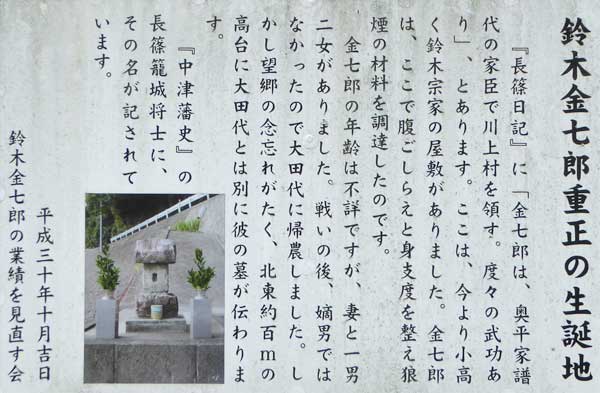 鈴木金七郎重正の生誕地
『長篠日記』に「金七郎は、奥平家譜
代の家臣で川上村を領す。度々の武功あ
り」、とあります。ここは、今より小高
く鈴木宗家の屋敷がありました。金七郎
は、ここで腹ごしらえと身支度を整え狼
煙の材料を調達したのです。
金七郎の年齢は不詳ですが、妻と一男
二女がありました。戦いの後、嫡男では
なかったので大田代に帰農しました。し
かし望郷の念忘れがたく、北東約百mの
高台に大田代とは別に彼の墓が伝わりま
す。
『中津藩史』の
長篠籠城将士に、
その名が記されて
います。
平成三十年十月吉日
鈴木金七郎の業績を見直す会